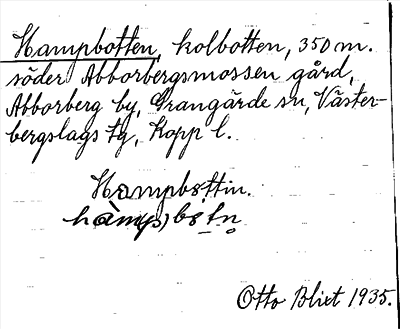 Hampbotten, kolbotten, 350 m.
söder Abborbergsmossen gård,
Abborberg by, Grangärde sn, Väster-
bergslags tg, Kopp l.
Hampbottin.
hàmp)bo̩tn̥
Otto Blixt 1935.